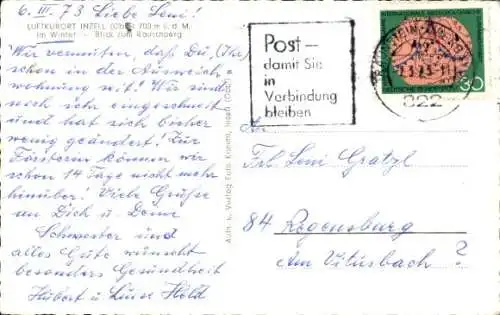 6. III. 73 Liebe Leni!
LUFTKURORT INZELL (Obb.) 700 m ü. d. M.
im Winter — Blick zum Rauschberg
Wir vermuten, daß Du, (Ihr)
schon in der Ausweich-
wohnung wit! Wir sind
noch sehr eingeschneit
und hat sich bisher
wenig geändert! Zur
Försterin können wir
schon 14 Tage nicht mehr
hinüber! Viele Grüße
an Dich u. Deine
Schwester und
alles Gute wünscht
besonders Gesundheit
Hubert u. Luise Held
Aufn. u. Verlag Foto Inzell (Obb.)
Post —
damit Sie
in
Verbindung
bleiben
822
DEUTSCHE BUNDESPOST
30
An
Frl. Leni Gratzl
84 Regensburg
Am Vitusbach ?